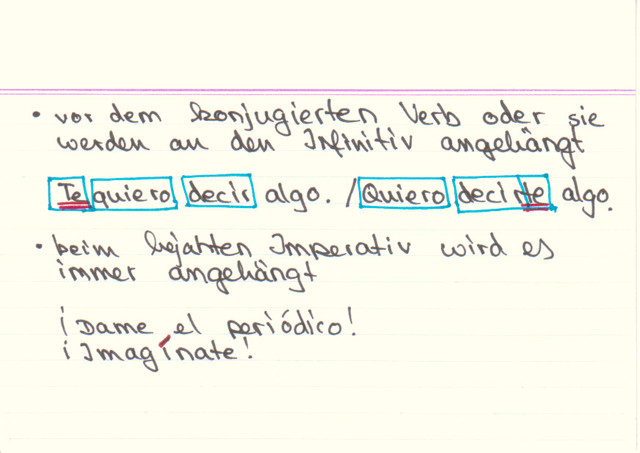 • vor dem konjugierten Verb oder sie
werden an den Infinitiv angehängt
Te quiero decir algo. / Quiero decirte algo.
• beim bejahten Imperativ wird es
immer angehängt
¡Dame el periódico!
¡Imagínate!